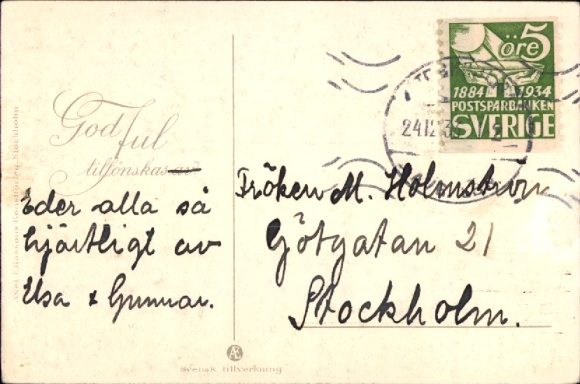 öre 5
1884 1934
POSTSPARBANKEN
SVERIGE
24.12.3
God Jul
tillönskas av
Eder alla så
hjärtligt av
Elsa & Gunnar.
Fröken M. Holmström
Götgatan 21
Stockholm.
Svensk tillverkning